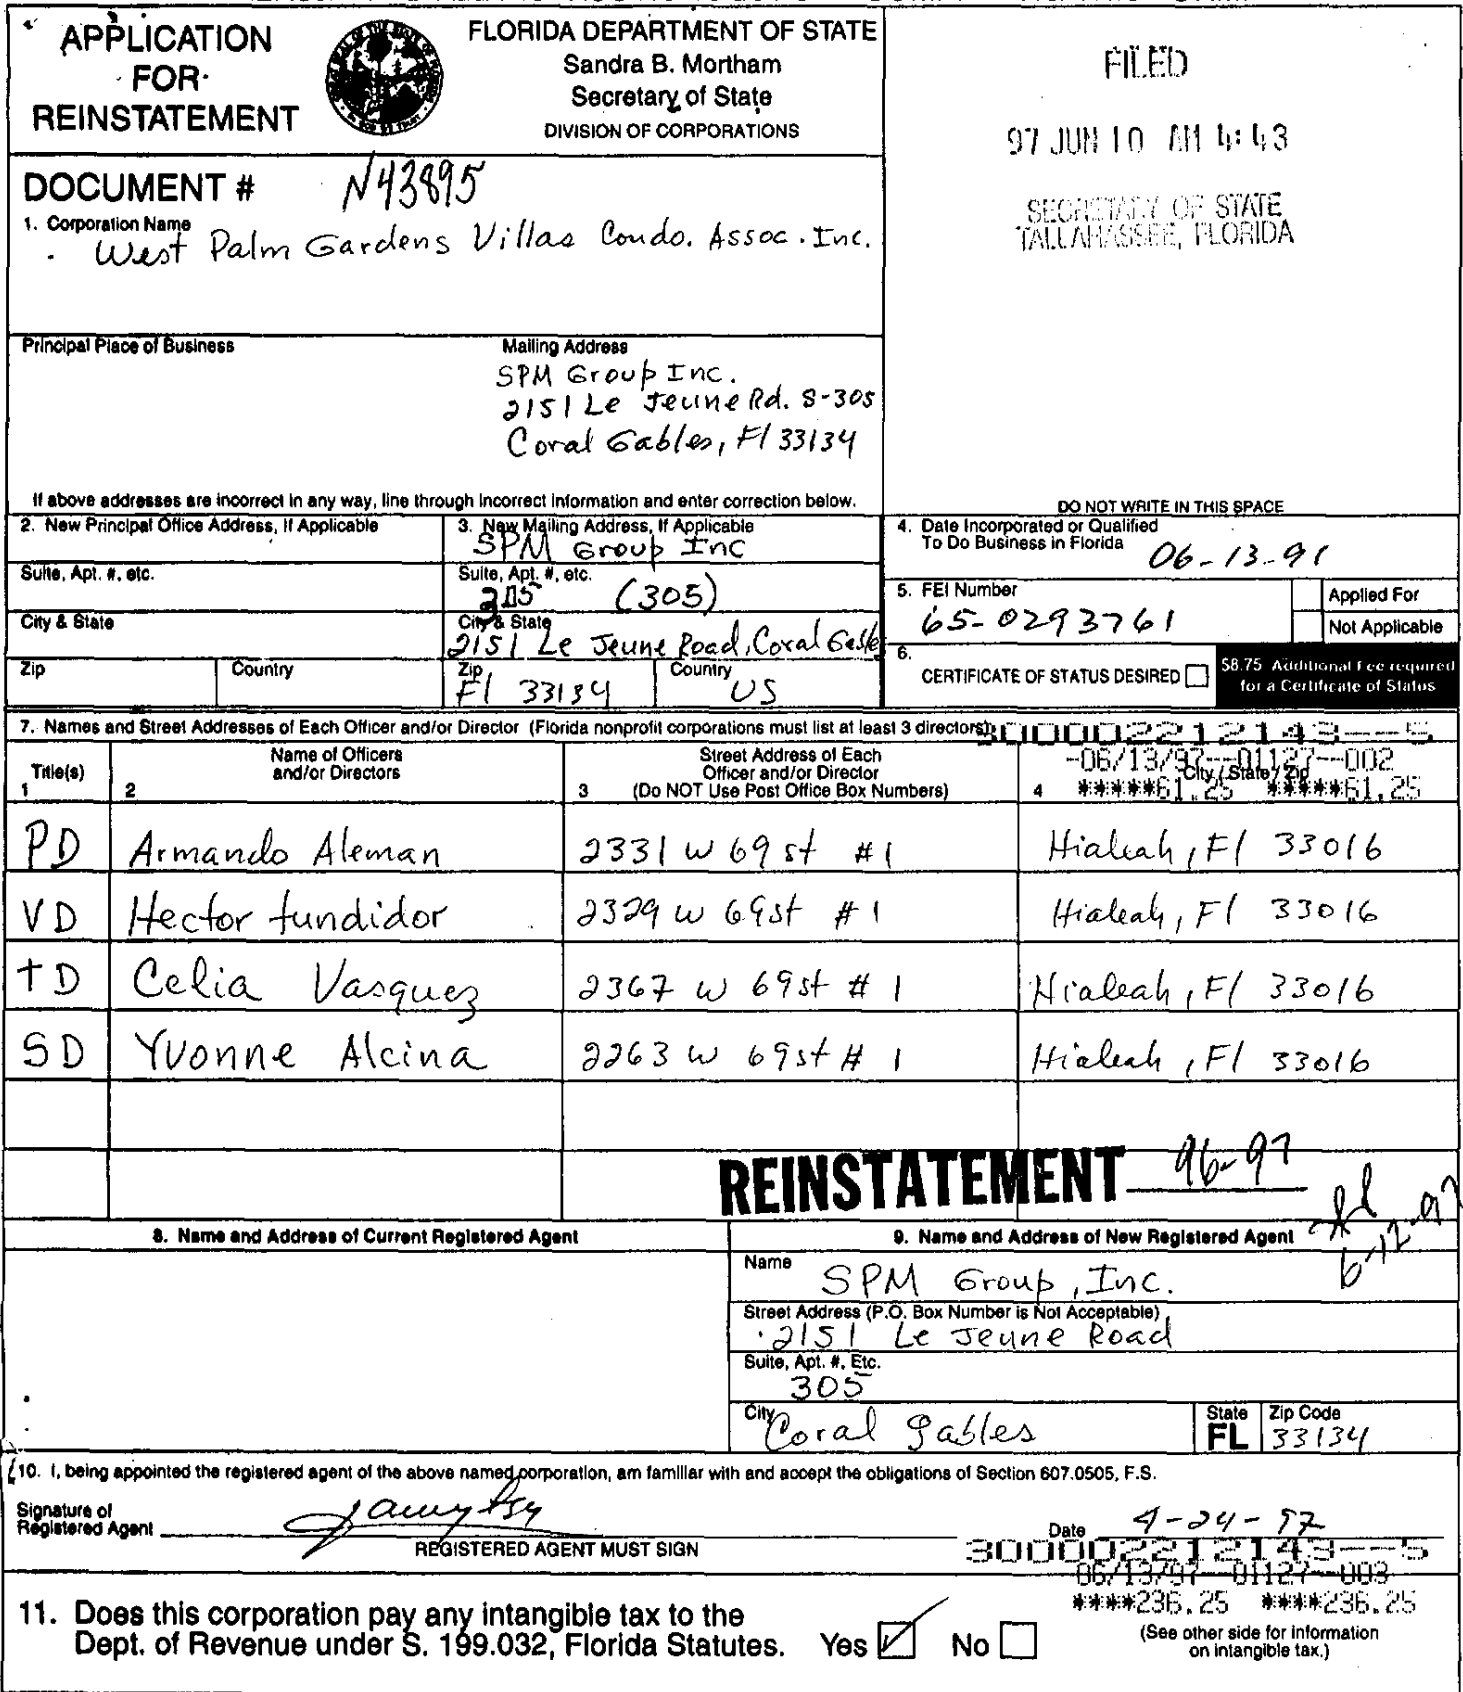 APPLICATION
FOR
REINSTATEMENT
FLORIDA DEPARTMENT OF STATE
Sandra B. Mortham
Secretary of State
DIVISION OF CORPORATIONS
FILED
97 JUN 10 AM 4:43
SECRETARY OF STATE
TALLAHASSEE, FLORIDA
DOCUMENT # N43895
1. Corporation Name
West Palm Gardens Villas Condo. Assoc. Inc.
Principal Place of Business
Mailing Address
SPM Group Inc.
2151 Le Jeune Rd. S-305
Coral Gables, Fl 33134
If above addresses are incorrect in any way, line through incorrect information and enter correction below.
DO NOT WRITE IN THIS SPACE
2. New Principal Office Address, If Applicable
Suite, Apt. #, etc.
City & State
Zip
Country
3. New Mailing Address, If Applicable
SPM Group Inc
Suite, Apt. #, etc.
(305)
City & State
2151 Le Jeune Road, Coral Gable
Zip
Fl 33134
Country
US
4. Date Incorporated or Qualified
To Do Business in Florida 06-13-91
5. FEI Number
65-0293761
Applied For
Not Applicable
6.
CERTIFICATE OF STATUS DESIRED
$8.75 Additional Fee required
for a Certificate of Status
7. Names and Street Addresses of Each Officer and/or Director (Florida nonprofit corporations must list at least 3 directors)
300002212143--5
-06/13/97--01127--002
*****61.25 *****61.25
Title(s)
1
Name of Officers
and/or Directors
2
Street Address of Each
Officer and/or Director
3 (Do NOT Use Post Office Box Numbers)
City / State / Zip
4
PD Armando Aleman 2331 W 69 st #1 Hialeah, Fl 33016
VD Hector fundidor 2329 W 69st #1 Hialeah, Fl 33016
TD Celia Vasquez 2367 W 69st # 1 Hialeah, Fl 33016
SD Yvonne Alcina 2263 W 69st # 1 Hialeah, Fl 33016
REINSTATEMENT 96-97
6-12-97
8. Name and Address of Current Registered Agent
9. Name and Address of New Registered Agent
Name
SPM Group, Inc.
Street Address (P.O. Box Number is Not Acceptable)
2151 Le Jeune Road
Suite, Apt. #, Etc.
305
City
Coral Gables
State
FL
Zip Code
33134
10. I, being appointed the registered agent of the above named corporation, am familiar with and accept the obligations of Section 607.0505, F.S.
Signature of
Registered Agent
REGISTERED AGENT MUST SIGN
Date 4-24-97
300002212143--5
06/13/97--01127--003
****236.25 ****236.25
11. Does this corporation pay any intangible tax to the
Dept. of Revenue under S. 199.032, Florida Statutes. Yes No
(See other side for information
on intangible tax.)